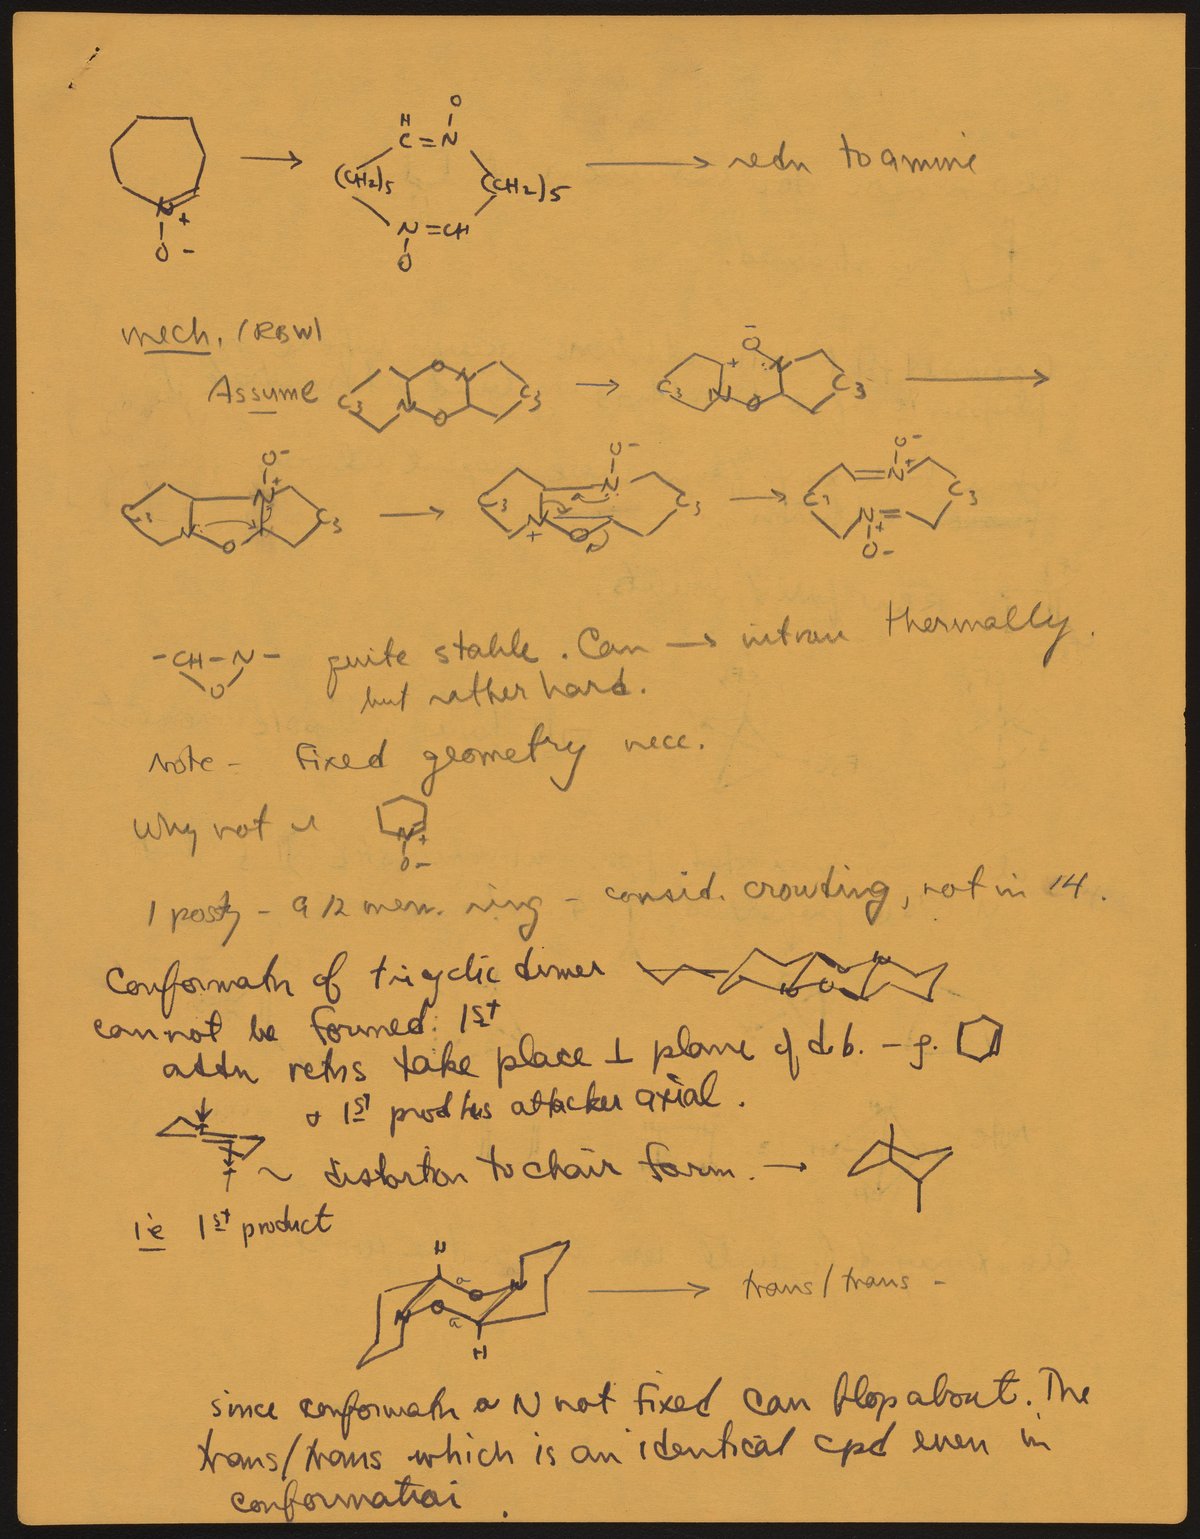 O
H
C=N
(CH2)5
(CH2)5
→ redn to amine
N+
O-
N=CH
O
mech. (RBW)
Assume
C3 O N N O C3
C3 + O- N N O C3
O-
N+
C3 N O C3
O-
C3 N N+ O C3
O-
N+
C3 C3
N+
O-
-CH-N-
O
quite stable. Can → nitrone thermally.
but rather hard.
Note - Fixed geometry nece.
Why not
N+
O-
1 possty - a 12 mem. ring - consid. crowding, not in 14.
Conformatn of tricyclic dimer
cannot be formed. 1st
addn retns take place ⊥ plane of d.b. - g.
1st prod has attacker axial.
~ distortion to chair form. →
ie 1st product
H
a
O
N
N
O
a
H
→ trans/trans -
since conformatn a N not fixed can flop about. The
trans/trans which is an identical cpd even in
conformation.